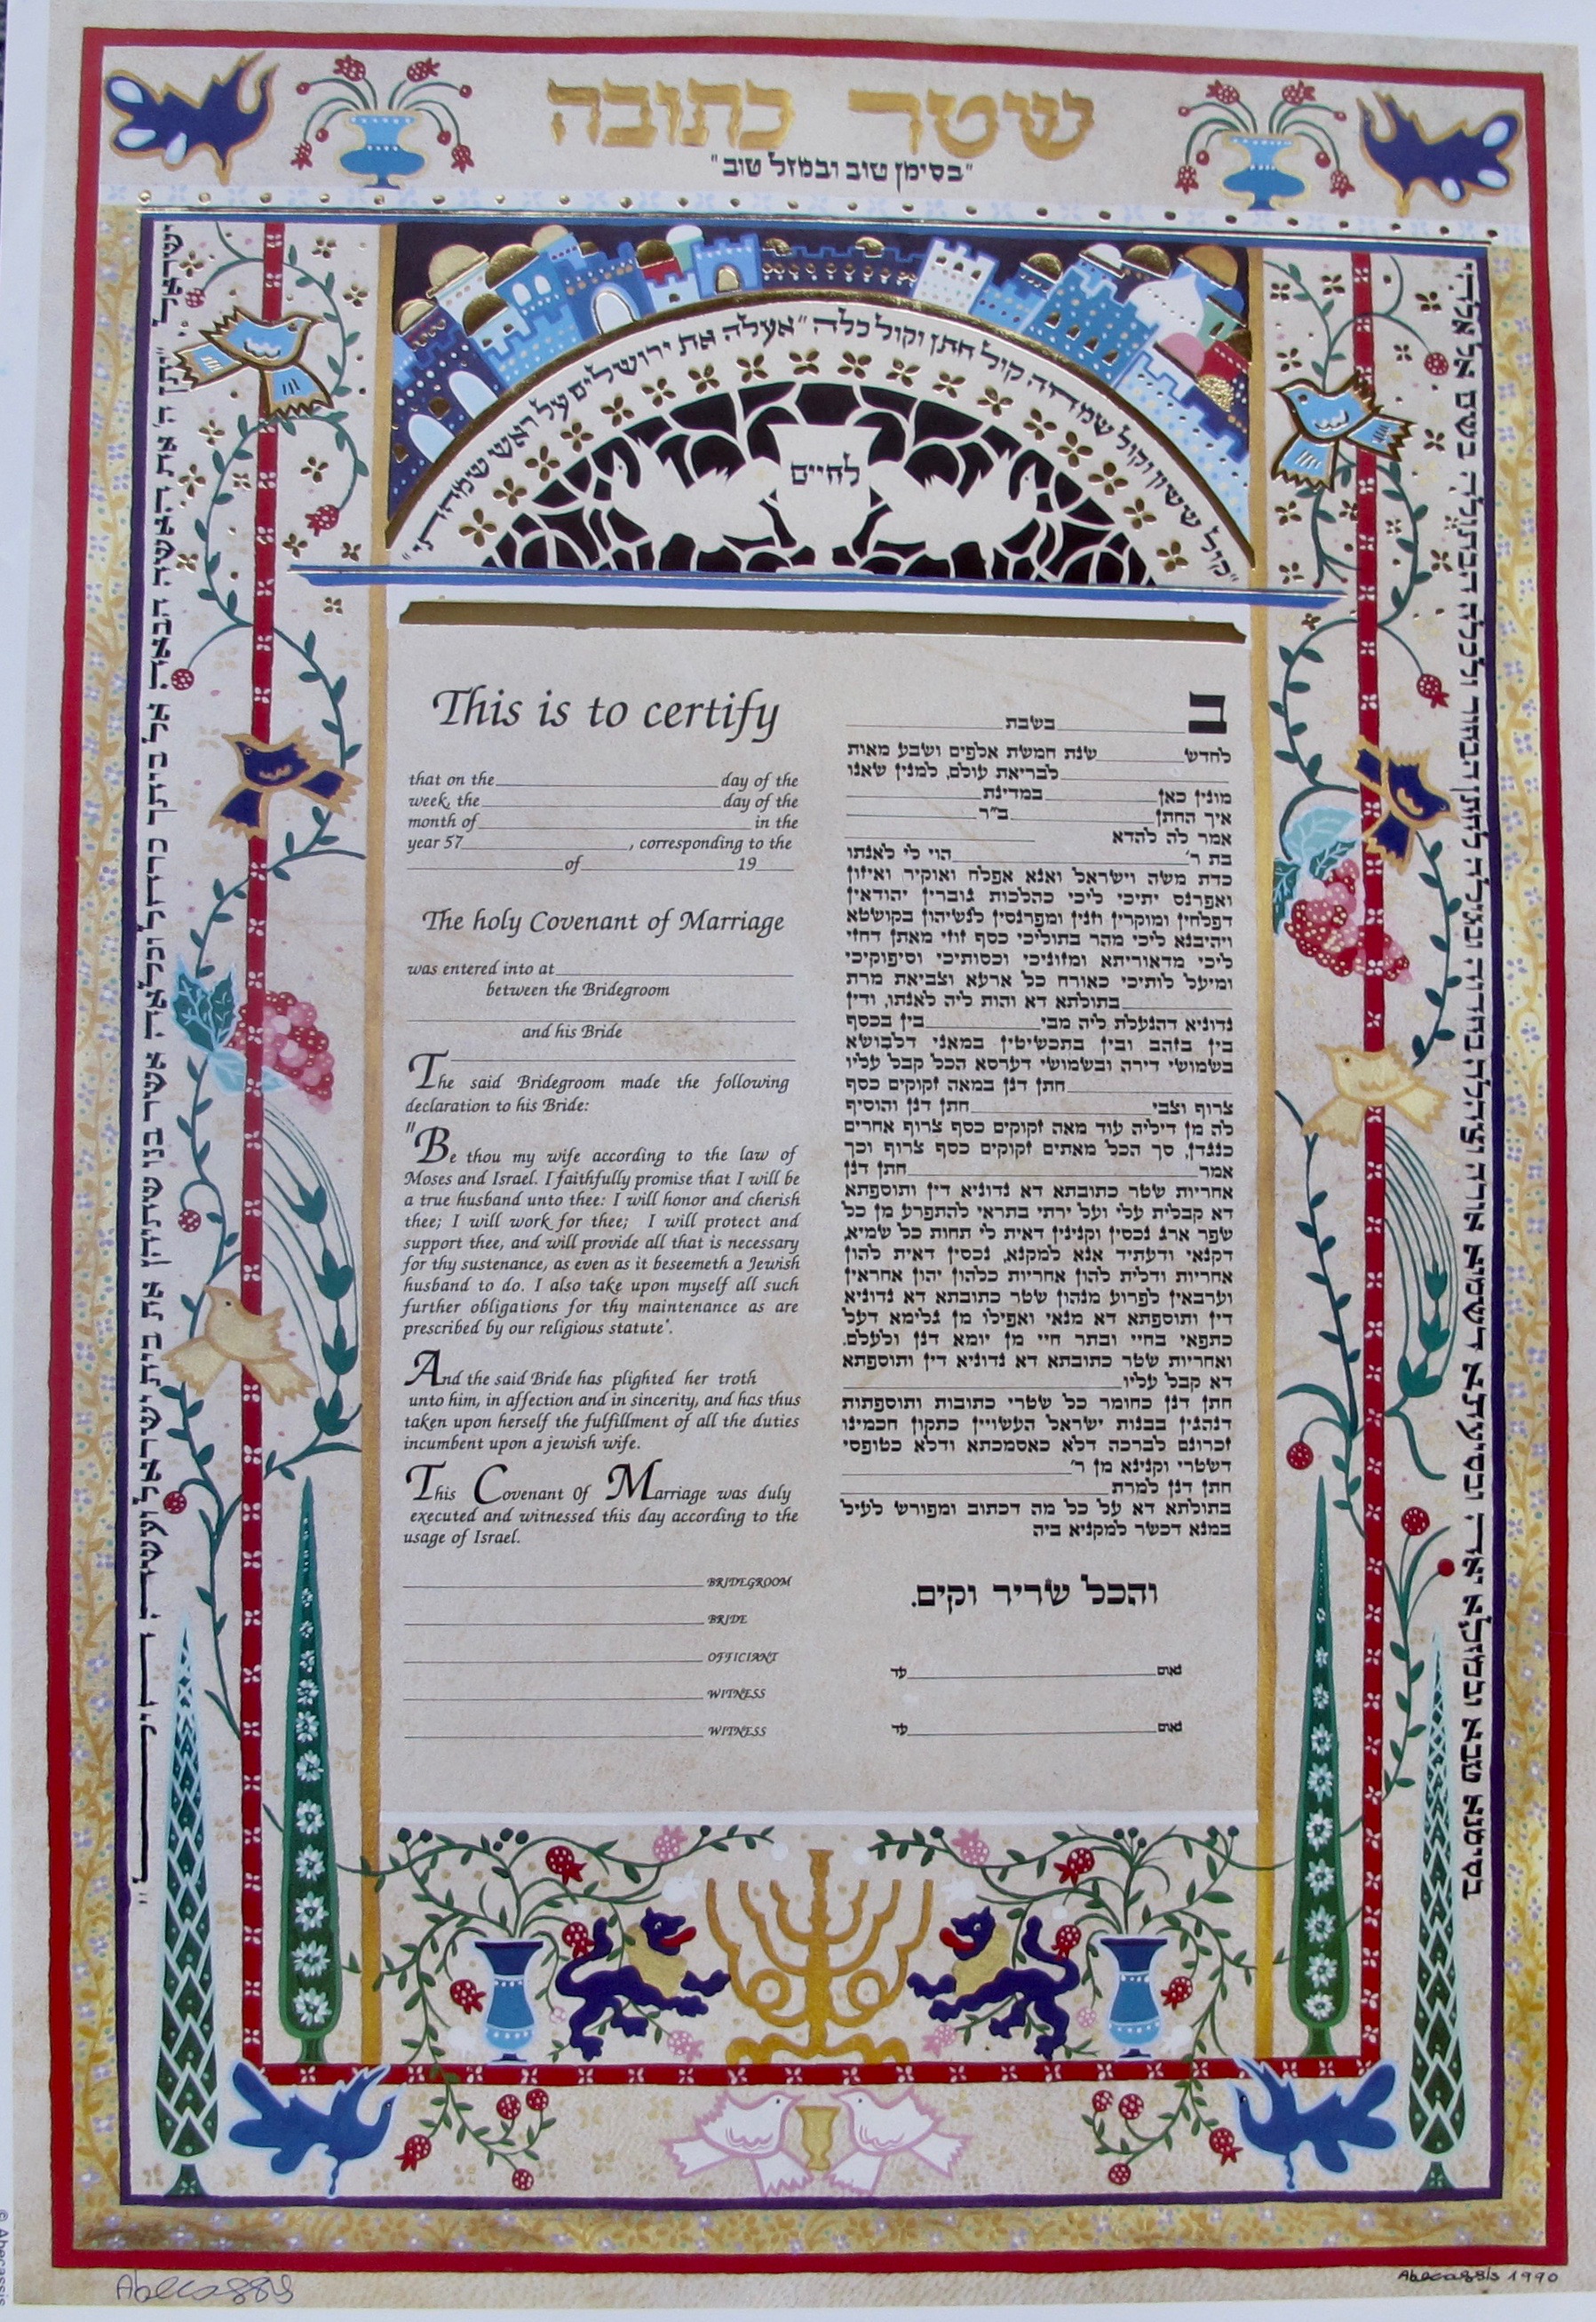 שטר כתובה
"בסימן טוב ובמזל טוב"
"קול ששון וקול שמחה קול חתן וקול כלה" אעלה את ירושלים על ראש שמחתי"
לחיים
This is to certify
that on the ____ day of the
week, the ____ day of the
month of ____ in the
year 57____, corresponding to the
____ of ____ 19____
The holy Covenant of Marriage
was entered into at ____
between the Bridegroom
____
and his Bride
____
The said Bridegroom made the following
declaration to his Bride:
"Be thou my wife according to the law of
Moses and Israel. I faithfully promise that I will be
a true husband unto thee: I will honor and cherish
thee; I will work for thee; I will protect and
support thee, and will provide all that is necessary
for thy sustenance, as even as it beseemeth a Jewish
husband to do. I also take upon myself all such
further obligations for thy maintenance as are
prescribed by our religious statute".
And the said Bride has plighted her troth
unto him, in affection and in sincerity, and has thus
taken upon herself the fulfillment of all the duties
incumbent upon a jewish wife.
This Covenant Of Marriage was duly
executed and witnessed this day according to the
usage of Israel.
____ BRIDEGROOM
____ BRIDE
____ OFFICIANT
____ WITNESS
____ WITNESS
ב____ בשבת ____
לחדש ____ שנת חמשת אלפים ושבע מאות
____ לבריאת עולם, למנין שאנו
מונין כאן ____ במדינת ____
איך החתן ____ ב"ר ____
אמר לה להדא ____
בת ר' ____ הוי לי לאנתו
כדת משה וישראל ואנא אפלח ואוקיר ואיזון
ואפרנס יתיכי ליכי כהלכות גוברין יהודאין
דפלחין ומוקרין וזנין ומפרנסין לנשיהון בקושטא
ויהיבנא ליכי מהר בתוליכי כסף זוזי מאתן דחזי
ליכי מדאוריתא ומזוניכי וכסותיכי וסיפוקיכי
ומיעל לותיכי כאורח כל ארעא וצביאת מרת
____ בתולתא דא והות ליה לאנתו, ודין
נדוניא דהנעלת ליה מבי ____ בין בכסף
בין בזהב ובין בתכשיטין במאני דלבושא
בשמושי דירה ובשמושי דערסא הכל קבל עליו
____ חתן דנן במאה זקוקים כסף
צרוף וצבי ____ חתן דנן והוסיף
לה מן דיליה עוד מאה זקוקים כסף צרוף אחרים
כנגדן, סך הכל מאתים זקוקים כסף צרוף וכך
אמר ____ חתן דנן
אחריות שטר כתובתא דא נדוניא דין ותוספתא
דא קבלית עלי ועל ירתי בתראי להתפרע מן כל
שפר ארג נכסין וקנינין דאית לי תחות כל שמיא,
דקנאי ודעתיד אנא למקנא, נכסין דאית להון
אחריות ודלית להון אחריות כלהון יהון אחראין
וערבאין לפרוע מנהון שטר כתובתא דא נדוניא
דין ותוספתא דא מנאי ואפילו מן גלימא דעל
כתפאי בחיי ובתר חיי מן יומא דנן ולעלם.
ואחריות שטר כתובתא דא נדוניא דין ותוספתא
דא קבל עליו ____
חתן דנן כחומר כל שטרי כתובות ותוספתות
דנהגין בבנות ישראל העשויין כתקון חכמינו
זכרונם לברכה דלא כאסמכתא ודלא כטופסי
דשטרי וקנינא מן ר' ____
חתן דנן למרת ____
בתולתא דא על כל מה דכתוב ומפורש לעיל
במנא דכשר למקניא ביה
והכל שריר וקים.
נאום ____ עד
נאום ____ עד
Abecassis
Abecassis 1990
© Abecassis